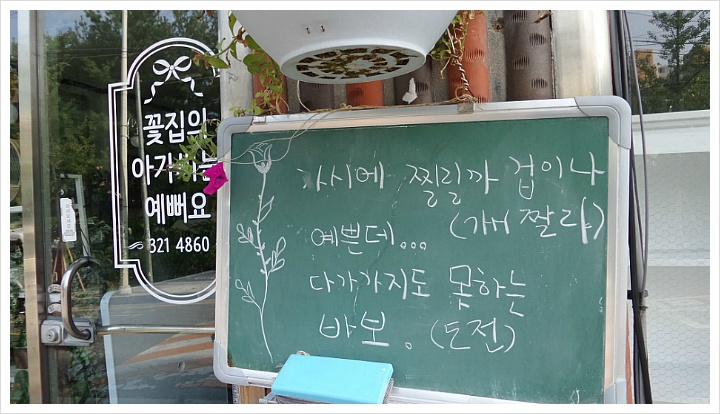 꽃집의
아가씨는
예뻐요
321 4860
가시에 찔릴까 겁이나
예쁜데... (개 짤랴)
다가가지도 못하는
바보. (도전)